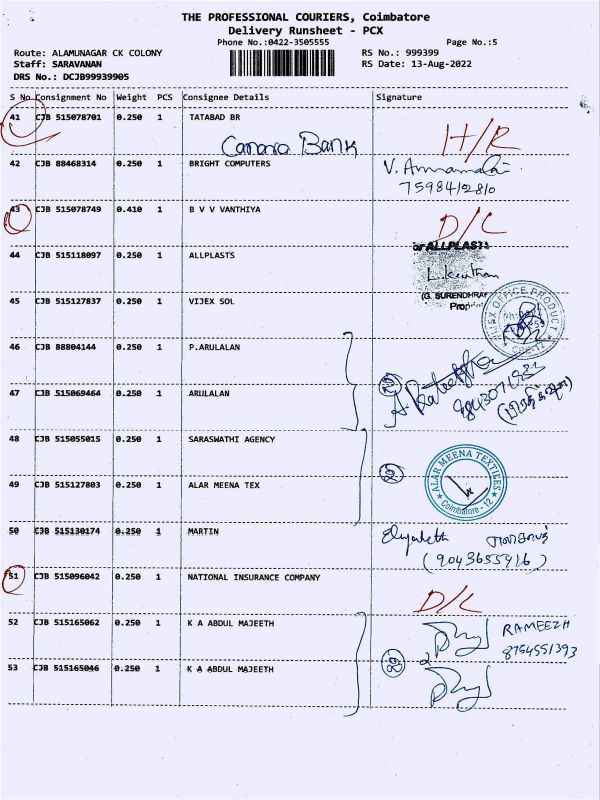 THE PROFESSIONAL COURIERS, Coimbatore
Delivery Runsheet - PCX
Phone No.:0422-3505555
Page No.:5
Route: ALAMUNAGAR CK COLONY
RS No.: 999399
Staff: SARAVANAN
RS Date: 13-Aug-2022
DRS No.: DCJB99939905
S No Consignment No Weight PCS Consignee Details Signature
41 CJB 515078701 0.250 1 TATABAD BR H/R
Canara Bank
42 CJB 88468314 0.250 1 BRIGHT COMPUTERS
7598412810
43 CJB 515078749 0.410 1 B V V VANTHIYA D/L
44 CJB 515118097 0.250 1 ALLPLASTS
for ALLPLASTS
(G. SURENDHRAN
45 CJB 515127837 0.250 1 VIJEX SOL
OFFICE PRODUCT
46 CJB 88804144 0.250 1 P.ARULALAN
47 CJB 515069464 0.250 1 ARULALAN
48 CJB 515055015 0.250 1 SARASWATHI AGENCY
49 CJB 515127803 0.250 1 ALAR MEENA TEX
ALAR MEENA TEXTILEES
Coimbatore - 12
50 CJB 515130174 0.250 1 MARTIN
(9043655916)
51 CJB 515096042 0.250 1 NATIONAL INSURANCE COMPANY D/L
52 CJB 515165062 0.250 1 K A ABDUL MAJEETH
RAMEEZH
8754551393
53 CJB 515165046 0.250 1 K A ABDUL MAJEETH